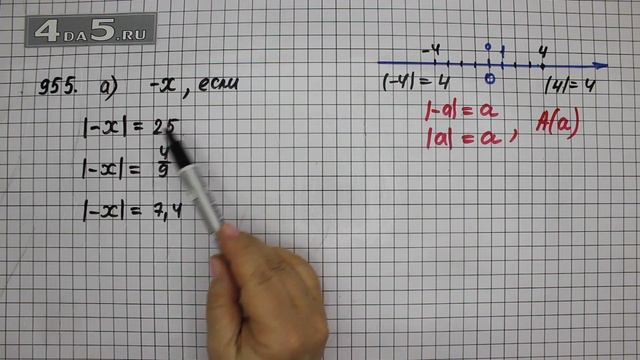 4DA5.RU
955. а) -x, если
|-x| = 25
|-x| = 4/9
|-x| = 7,4
-4 0 1 4
|-4| = 4 0 |4| = 4
|-a| = a
|a| = a , A(a)